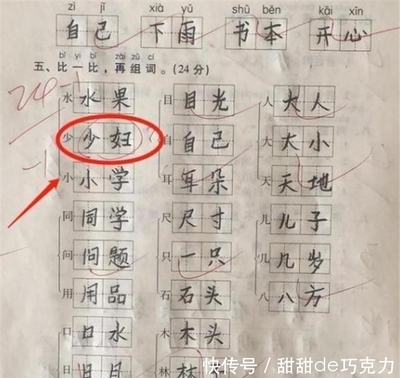 zì jǐ xià yǔ shū běn kāi xīn
自己 下雨 书本 开心
bǐ yi bǐ zài zǔ cí
五、比一比，再组词。(24分)
24
水 水果 目 目光 人 大人
少 少妇 自 自己 大 大小
小 小学 耳 耳朵 天 天地
同 同学 尺 尺寸 儿 儿子
问 问题 只 一只 几 几岁
用 用品 石 石头 八 八方
口 口水 木 木头
日 日 林 林
快传号／甜甜de巧克力